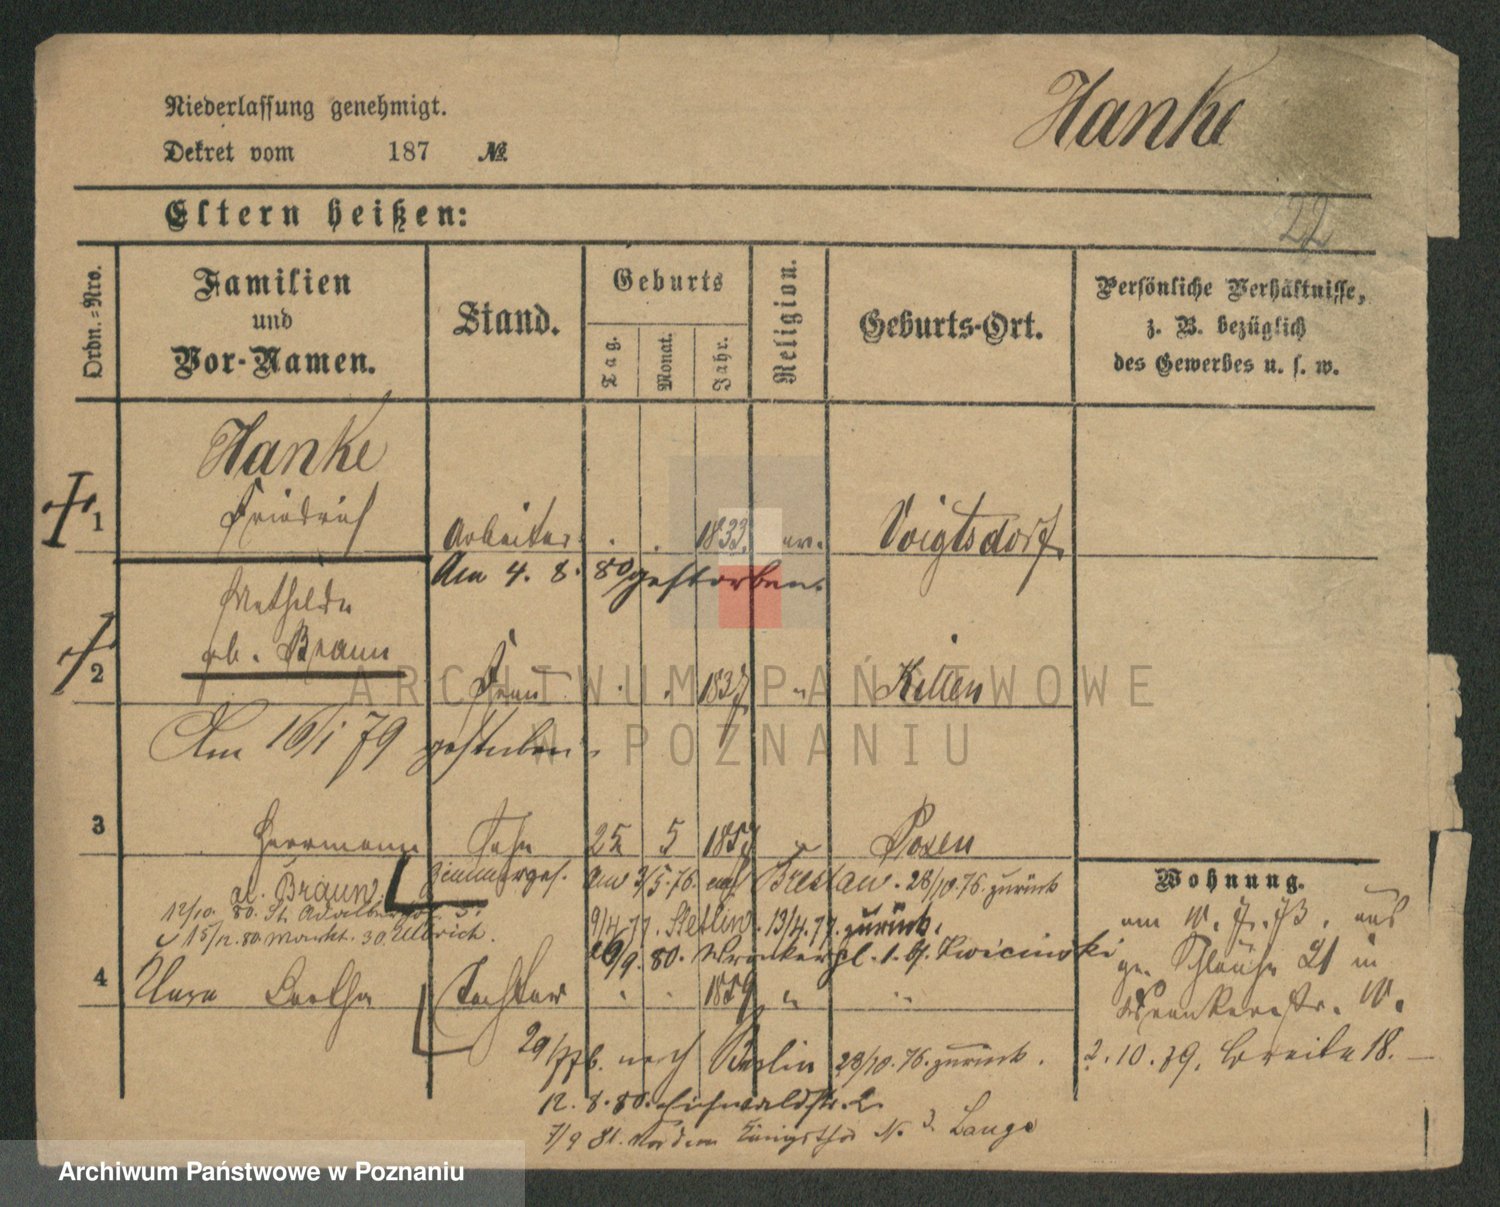 Niederlassung genehmigt.
Hanke
Dekret vom 187 №
Eltern heißen:
22
Ordn.-Nro.
Familien und Vor-Namen.
Stand.
Geburts
Tag.
Monat.
Jahr.
Religion.
Geburts-Ort.
Persönliche Verhältnisse, z. B. bezüglich des Gewerbes u. s. w.
Hanke
1 Friedrich Arbeiter 1833. ev. Voigtsdorf
Am 4. 8. 80 gestorben.
Mathilde
2 gb. Braun Frau 1837 " Killen
Am 16/1 79 gestorben.
3 Herrmann Sohn 25 5 1857 " Posen
Wohnung.
al. Braun. Zimmerges. Am 3/5. 76. auf Breslau. 28/10. 76. zurück
12/10. 80. St. Adalbert 3.
9/4. 77. Stettin. 13/4. 77. zurück.
15/12. 80. Markt. 30. Ullrich.
26/9. 80. Wronkerpl. 1. b. Zwicinski
am 10. 7. 73. aus
gr. 21 in
Wronkerstr. 10.
4 Bertha Tochter " " 1859 " "
29/7 76. nach Berlin 28/10. 76. zurück.
2. 10. 79. Breite 18.
12. 8. 80. Eichwaldstr. 2.
7/9 81. Vor dem Königsthor № 3. Lange
Archiwum Państwowe w Poznaniu
ARCHIWUM PAŃSTWOWE
W POZNANIU